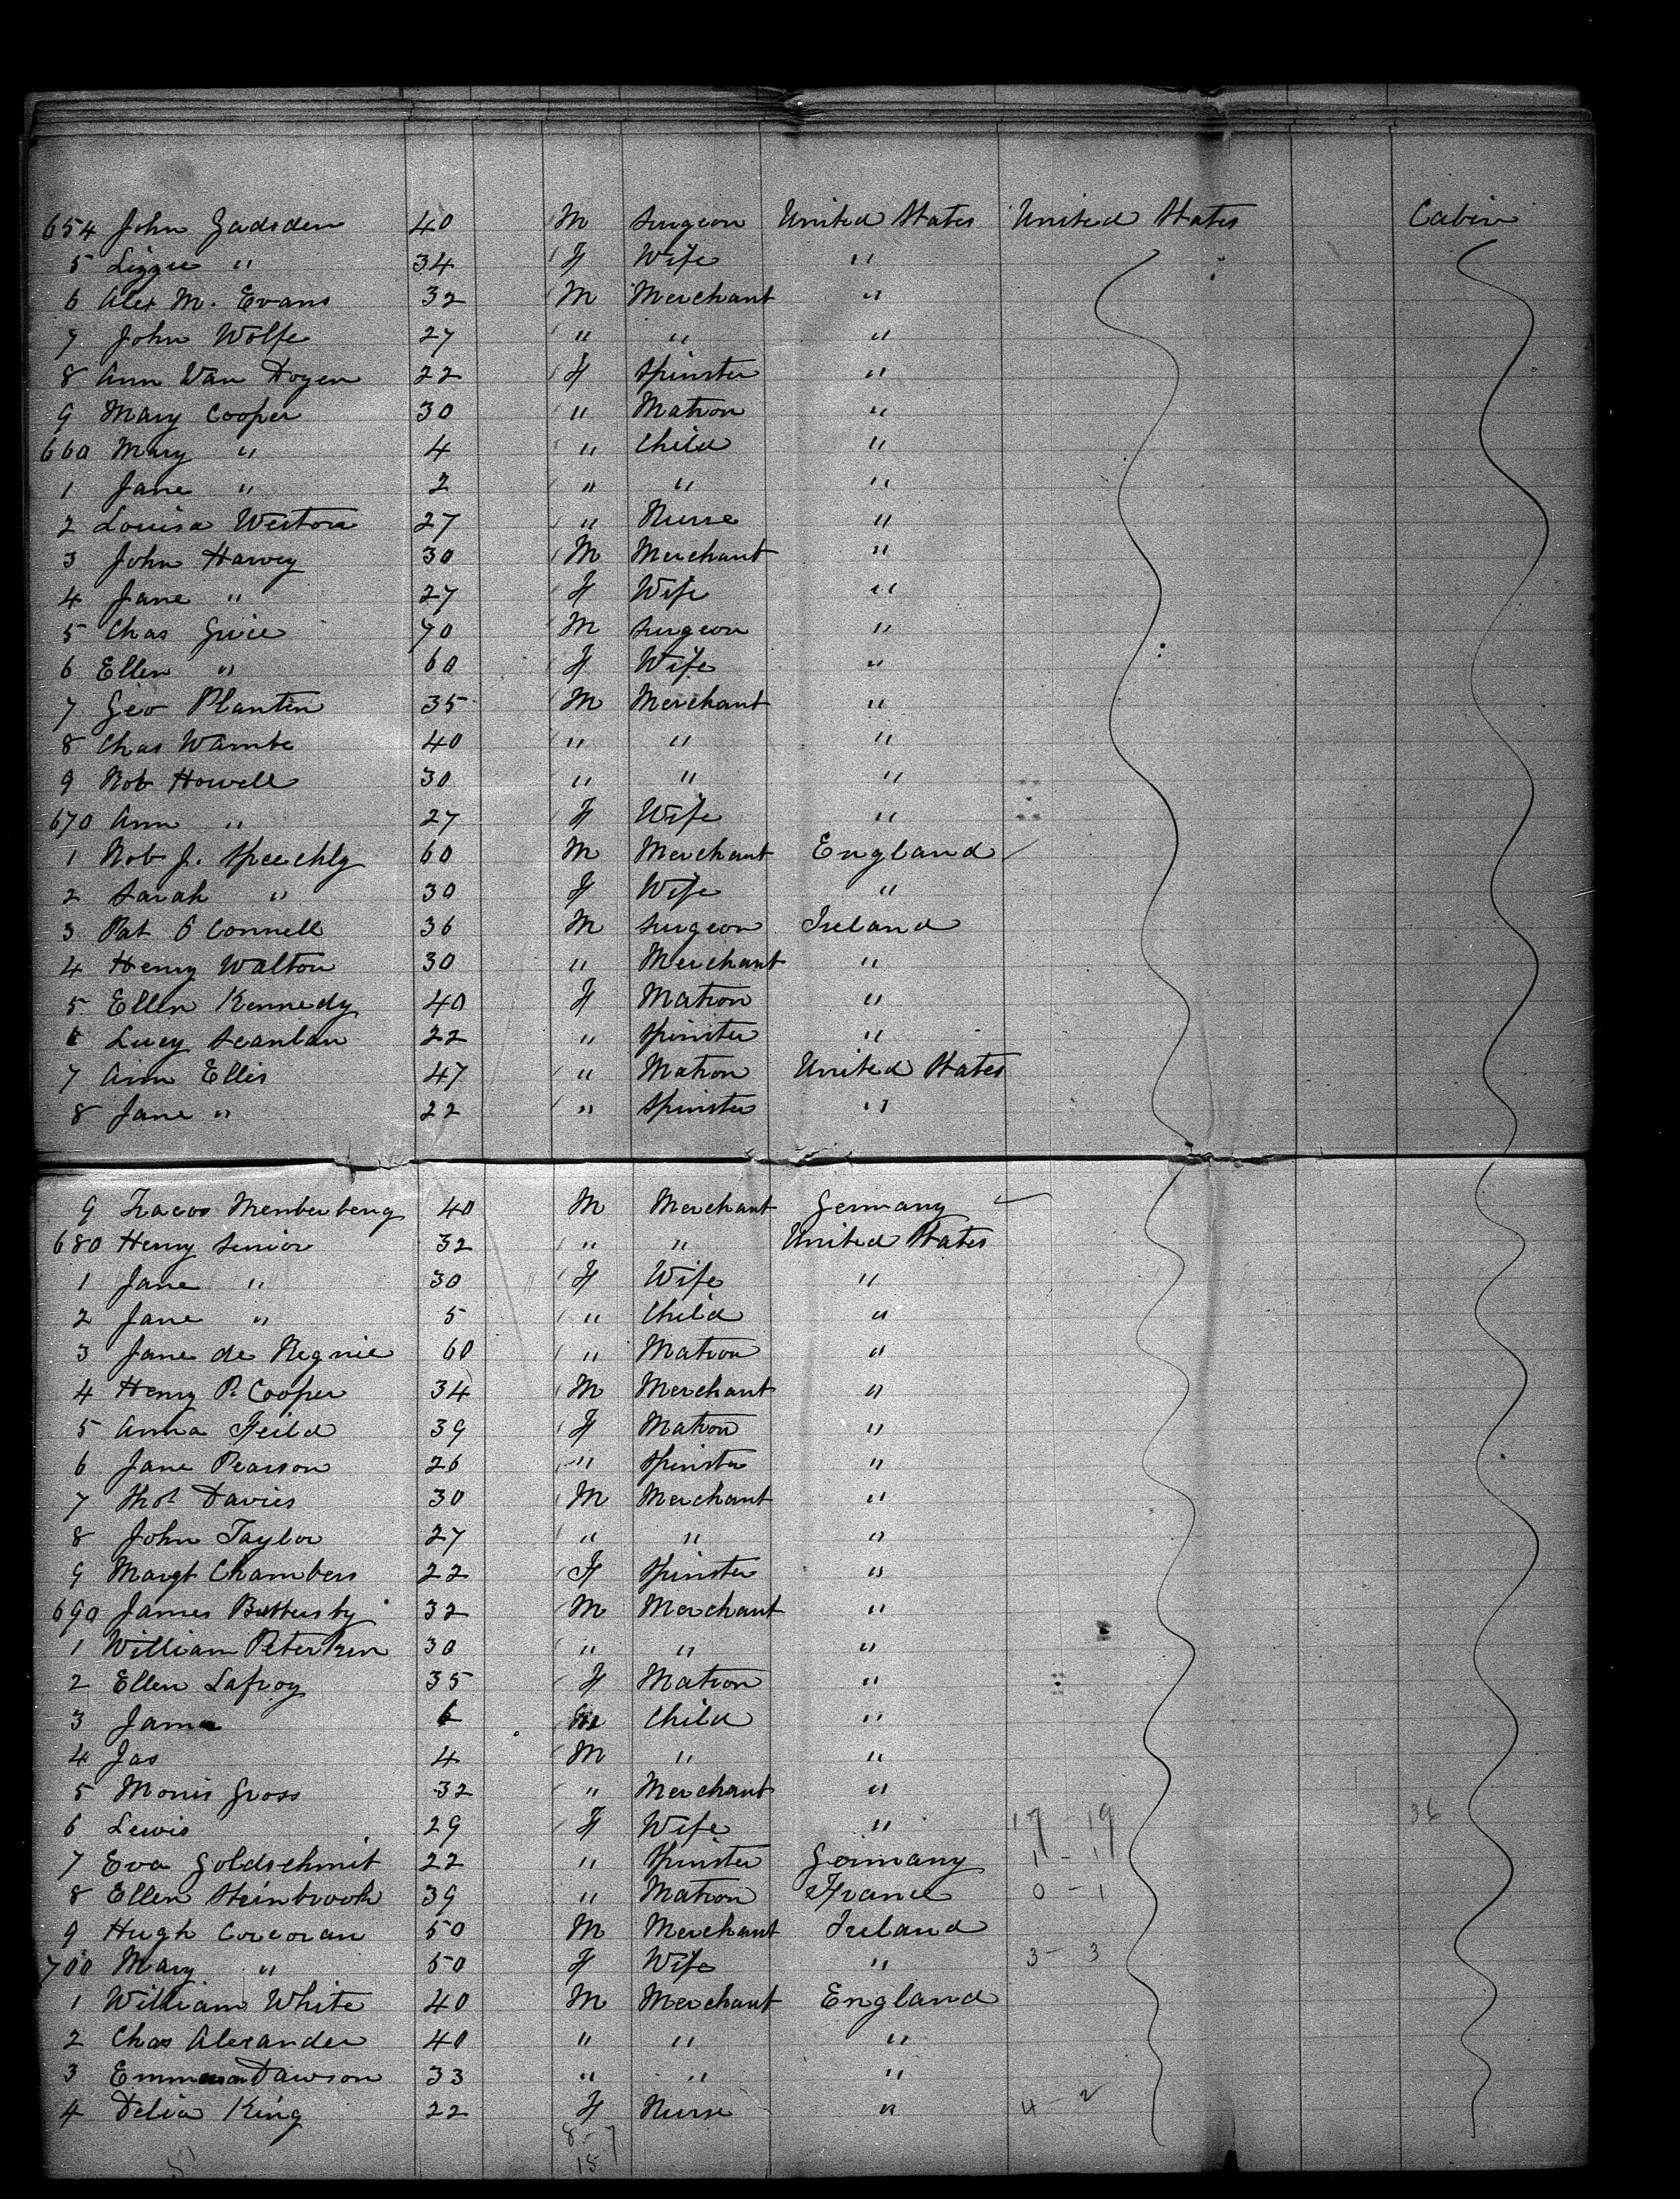 654 John Gadsden 40 M Surgeon United States United States Cabin
5 Lizzie " 34 F Wife "
6 Alex M. Evans 32 M Merchant "
7 John Wolfe 27 " " "
8 Ann Van Hoyen 22 F Spinster "
9 Mary Cooper 30 " Matron "
660 Mary " 4 " Child "
1 Jane " 2 " " "
2 Louisa Weston 27 " Nurse "
3 John Harvey 30 M Merchant "
4 Jane " 27 F Wife "
5 Chas Grice 70 M Surgeon "
6 Ellen " 60 F Wife "
7 Geo Planten 35 M Merchant "
8 Chas Wambe 40 " " "
9 Rob Howell 30 " " "
670 Ann " 27 F Wife "
1 Rob J. Speechly 60 M Merchant England
2 Sarah " 30 F Wife "
3 Pat O Connell 36 M Surgeon Ireland
4 Henry Walton 30 " Merchant "
5 Ellen Kennedy 40 F Matron "
6 Lucy Scanlan 22 " Spinster "
7 Ann Ellis 47 " Matron United States
8 Jane " 22 " Spinster "
9 40 M Merchant Germany
680 Henry Senior 32 " " United States
1 Jane " 30 F Wife "
2 Jane " 5 " Child "
3 Jane de Regnie 60 " Matron "
4 Henry P. Cooper 34 M Merchant "
5 Anna Feild 39 F Matron "
6 Jane Pearson 26 " Spinster "
7 Thos Davies 30 M Merchant "
8 John Taylor 27 " " "
9 Margt Chambers 22 F Spinster "
690 James Buttersby 32 M Merchant "
1 William Peterkin 30 " " "
2 Ellen Lafroy 35 F Matron "
3 6 Child "
4 Jas 4 M " "
5 Morris Gross 32 " Merchant "
6 Lewis 29 F Wife " 17 - 19 36
7 Eva Goldschmit 22 " Spinster Germany 1 - 1
8 Ellen Steinbrook 39 " Matron France 0 - 1
9 Hugh Corcoran 50 M Merchant Ireland
700 Mary " 50 F Wife " 3 - 3
1 William White 40 M Merchant England
2 Chas Alexander 40 " " "
3 Dawson 33 " " "
4 Delia King 22 F Nurse " 4 - 2
8 - 7
15